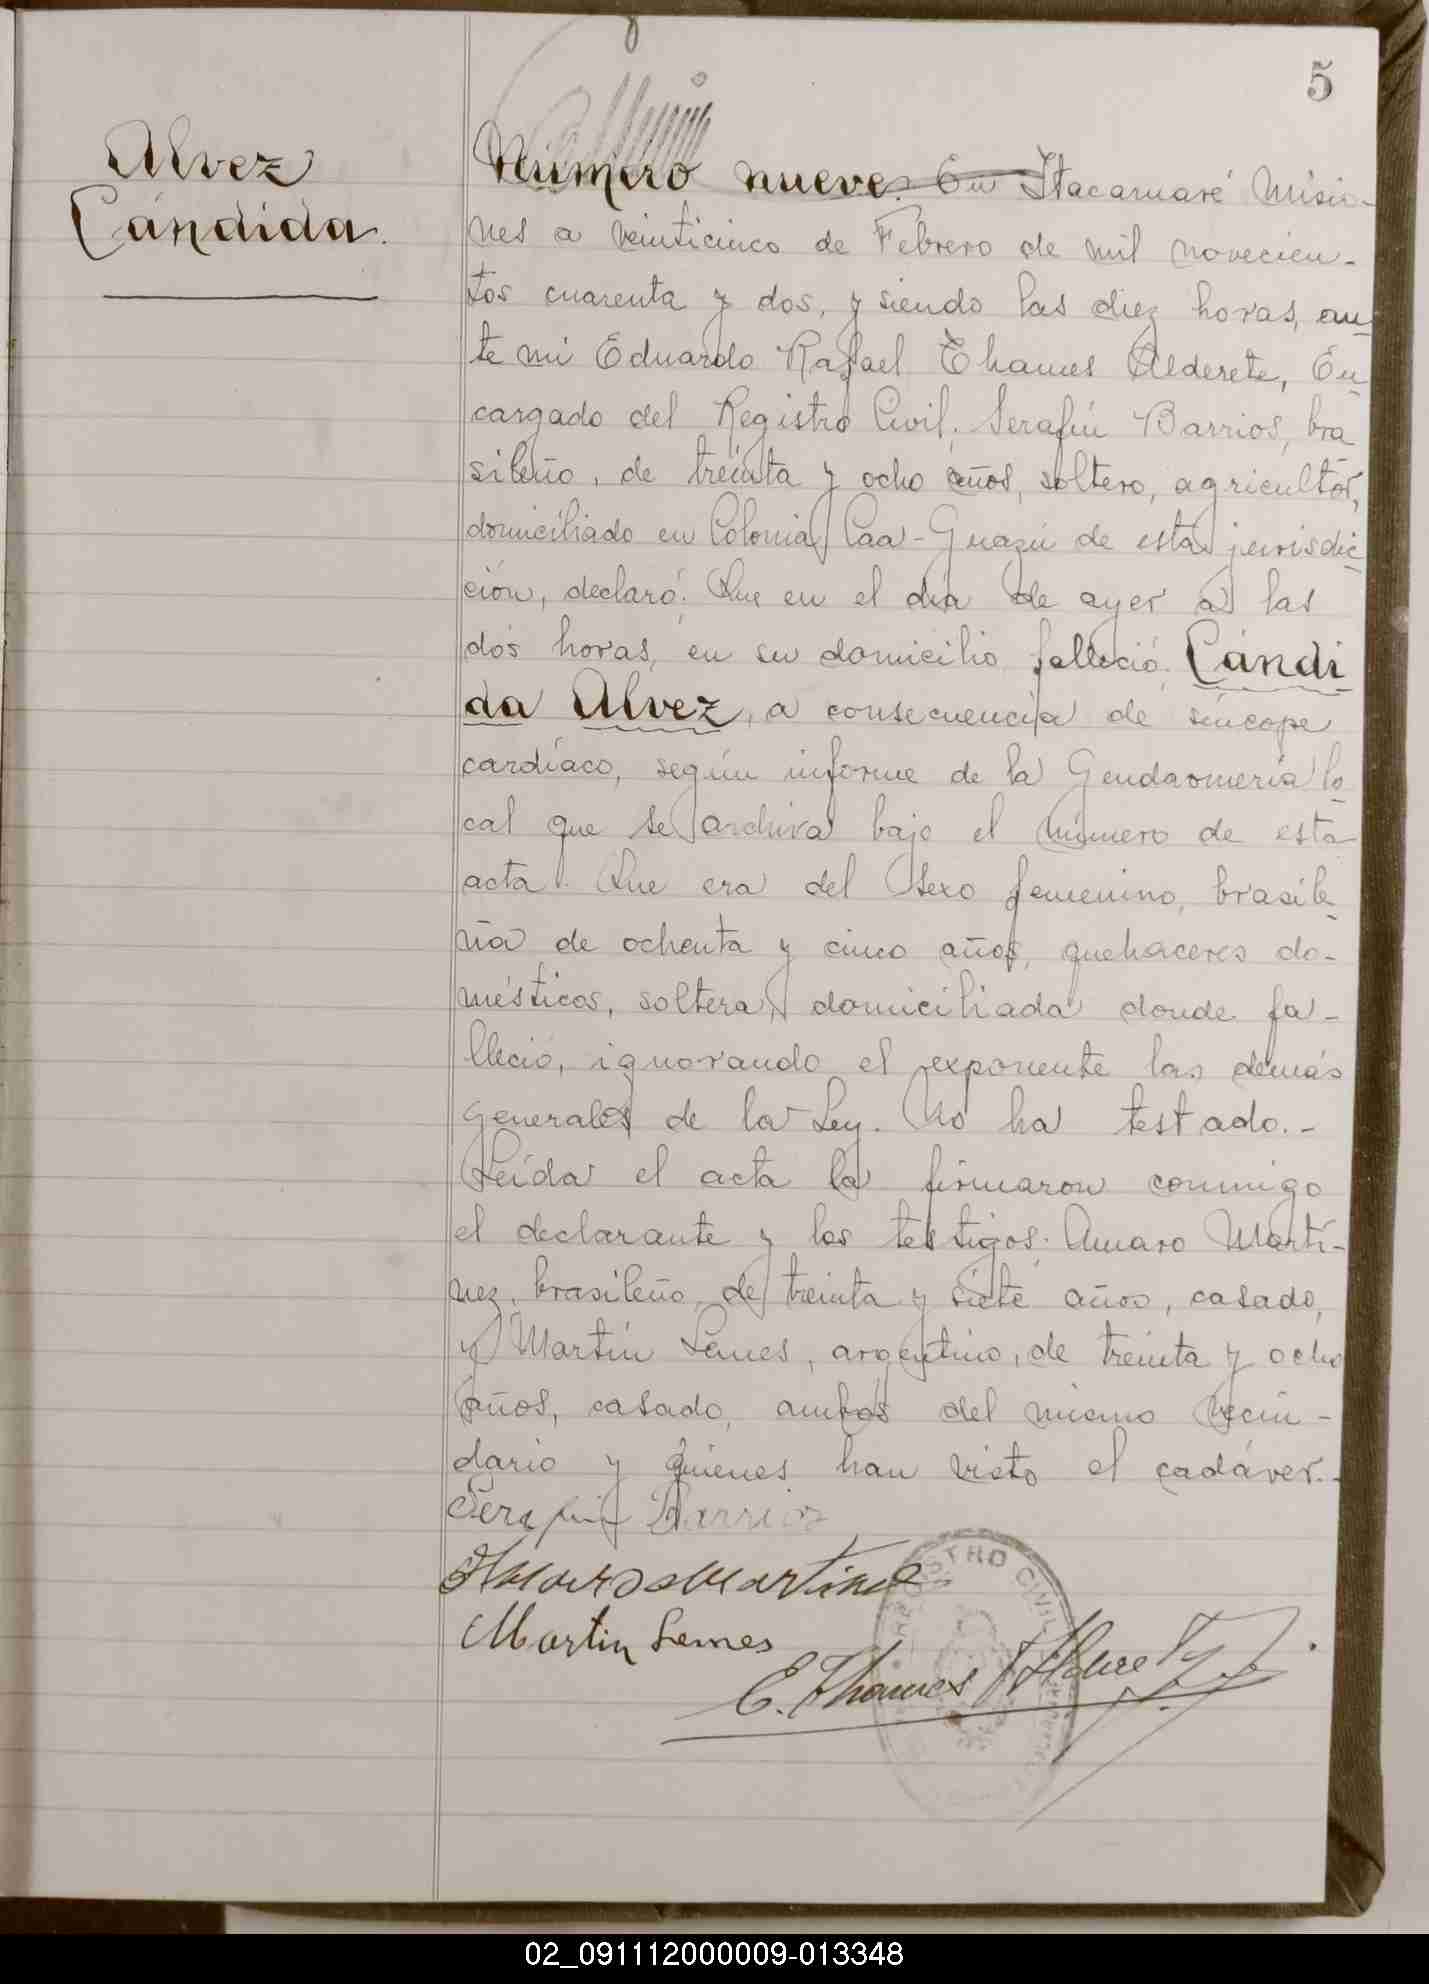 5
Alvez
Cándida.
Número nueve. En Itacaruaré Misio-
nes a veinticinco de Febrero de mil novecien-
tos cuarenta y dos, y siendo las diez horas, an-
te mi Eduardo Rafael Thames Alderete, En-
cargado del Registro Civil, Serafín Barrios, bra-
sileño, de treinta y ocho años, soltero, agricultor,
domiciliado en Colonia Caa-Guazú de esta jurisdic-
ción, declaró: Que en el día de ayer a las
dos horas, en su domicilio falleció Cándi-
da Alvez, a consecuencia de síncope
cardíaco, según informe de la Gendarmería lo-
cal que se archiva bajo el número de esta
acta. Que era del sexo femenino, brasile-
ña de ochenta y cinco años, quehaceres do-
mésticos, soltera, domiciliada donde fa-
lleció, ignorando el exponente las demás
generales de la Ley. No ha testado.-
Leída el acta la firmaron conmigo
el declarante y los testigos: Amaro Martí-
nez, brasileño, de treinta y siete años, casado,
y Martín Lemes, argentino, de treinta y ocho
años, casado, ambos del mismo vecin-
dario y quienes han visto el cadáver.-
Serafin Barrios
Amaro Martinez
Martin Lemes
E. Thames Alderete
REGISTRO CIVIL
02_091112000009-013348